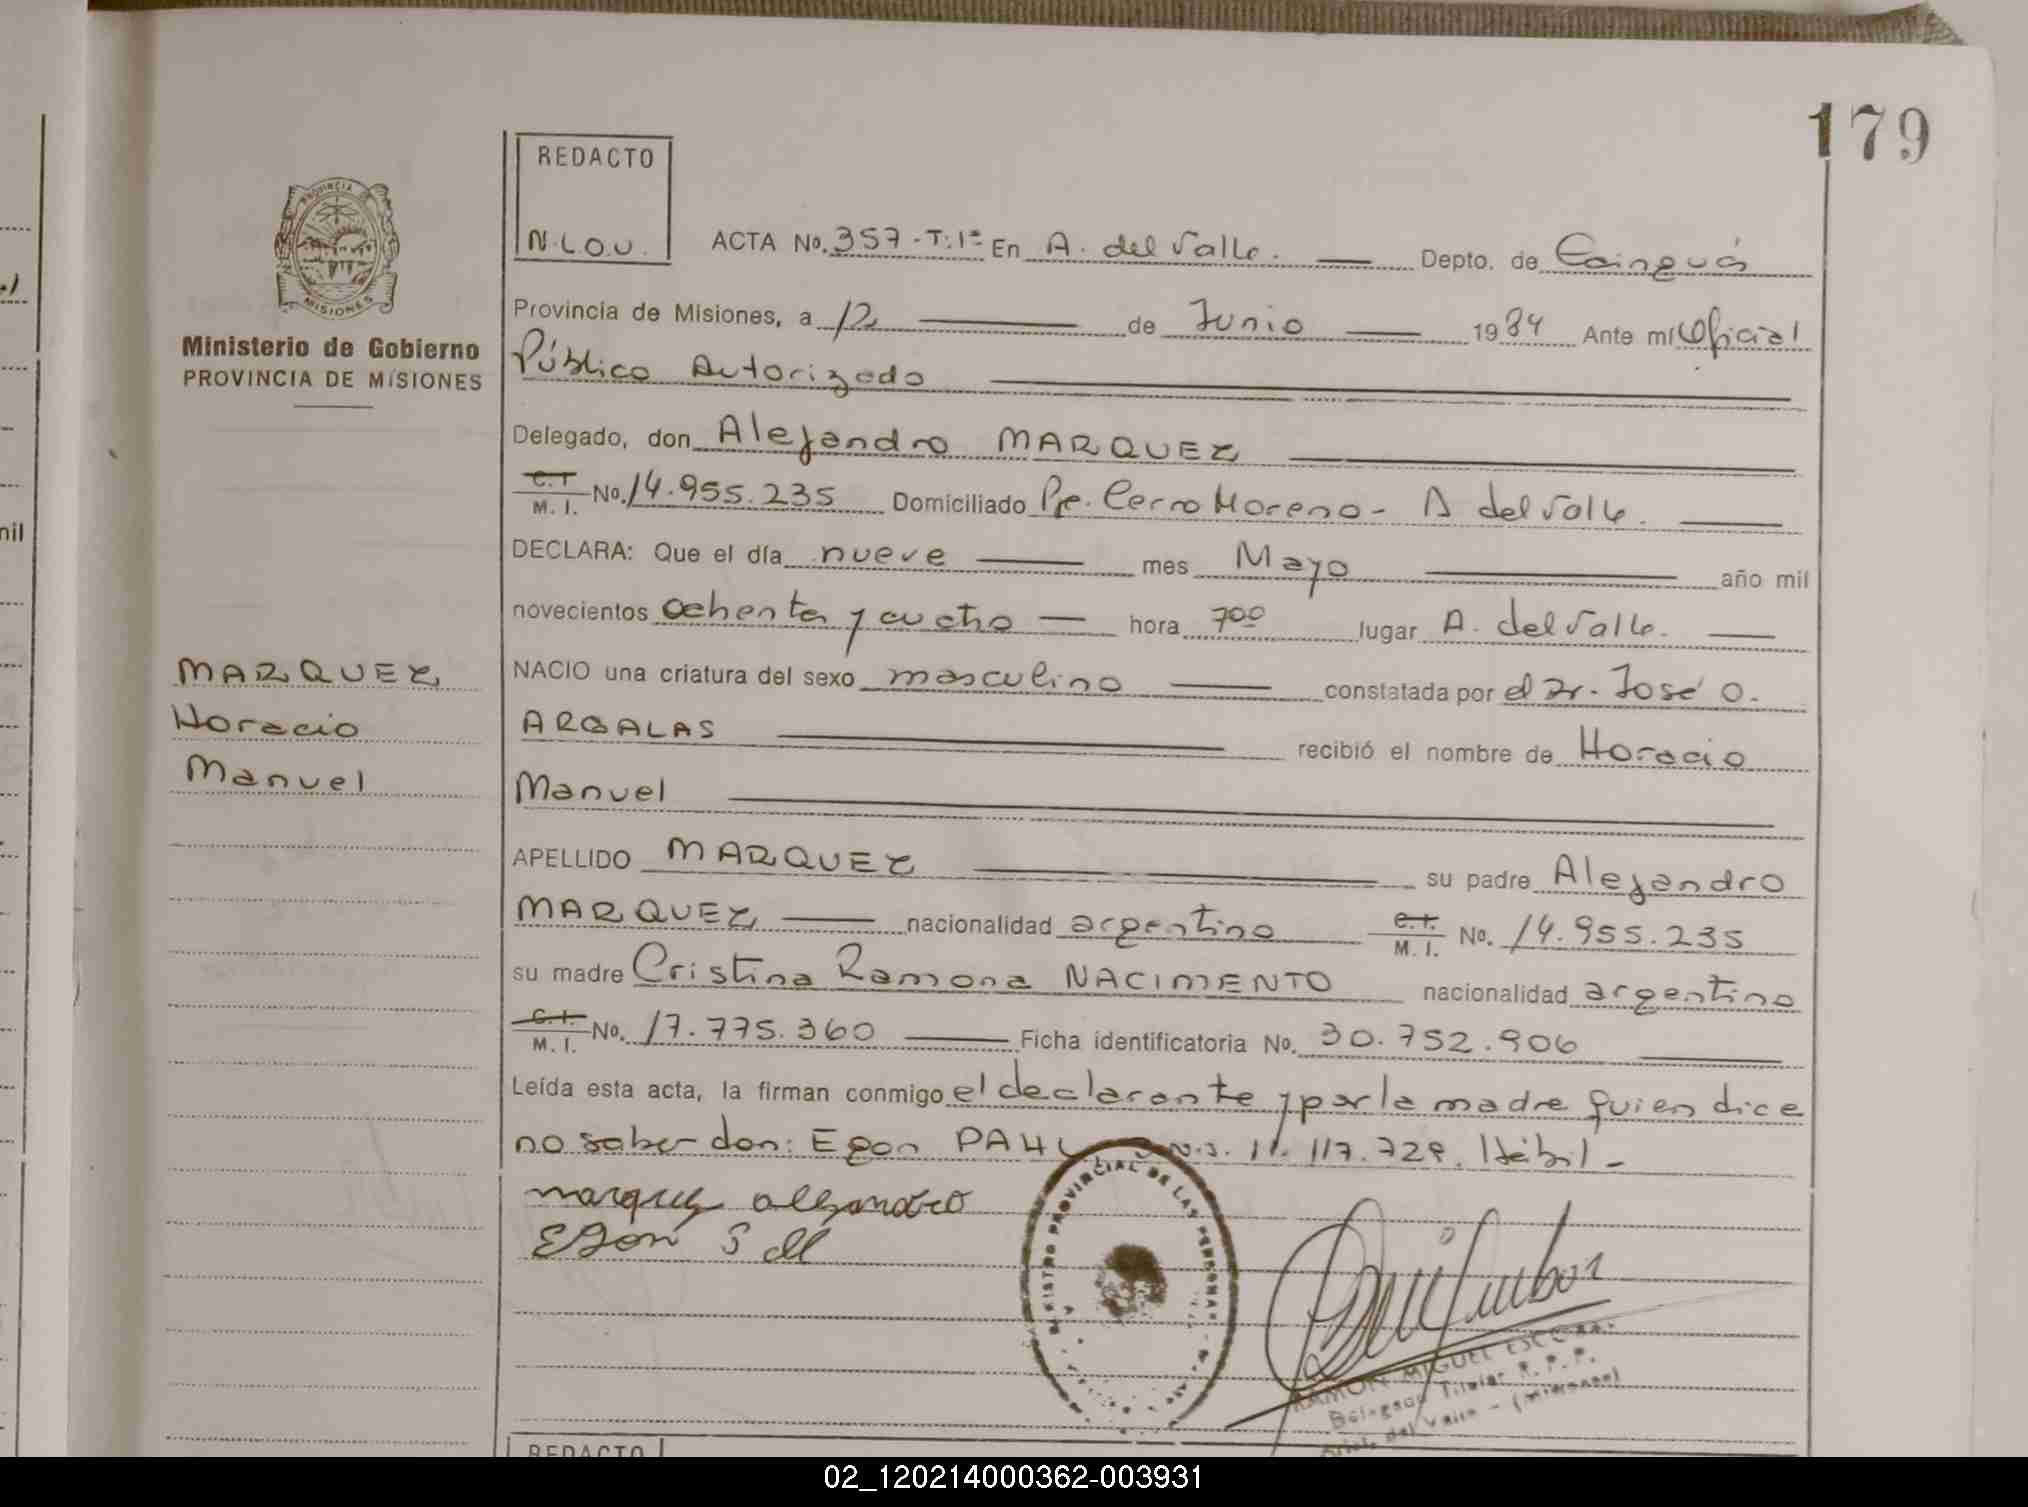 179
REDACTO
N.L.O.U.
ACTA No. 357-T:1º En A. del Valle. Depto. de Cainguás
PROVINCIA DE
MISIONES
Provincia de Misiones, a 12 de Junio 1984 Ante mí Oficial
Ministerio de Gobierno
PROVINCIA DE MISIONES
Público Autorizado
Delegado, don Alejandro MARQUEZ
C.I. M. I. No. 14.955.235 Domiciliado Pje. Cerro Moreno - A del Valle.
DECLARA: Que el día nueve mes Mayo año mil
novecientos ochenta y cuatro hora 7oo lugar A. del Valle.
MARQUEZ
Horacio
Manuel
NACIO una criatura del sexo masculino constatada por el Dr. José O.
ARGALAS recibió el nombre de Horacio
Manuel
APELLIDO MARQUEZ su padre Alejandro
MARQUEZ nacionalidad argentino C.I. M. I. No. 14.955.235
su madre Cristina Ramona NACIMENTO nacionalidad argentino
C.I. M. I. No. 17.775.360 Ficha identificatoria No. 30.752.906
Leída esta acta, la firman conmigo el declarante y por la madre quien dice
no saber don: Egon PAHL 11.117.729. Hábil -
marquez alejandro
Egon
REGISTRO PROVINCIAL DE LAS PERSONAS
RAMON MIGUEL ESCOBAR
Delegado Titular R. P. P.
Arist. del Valle - (Misiones)
REDACTO
nil
02_120214000362-003931